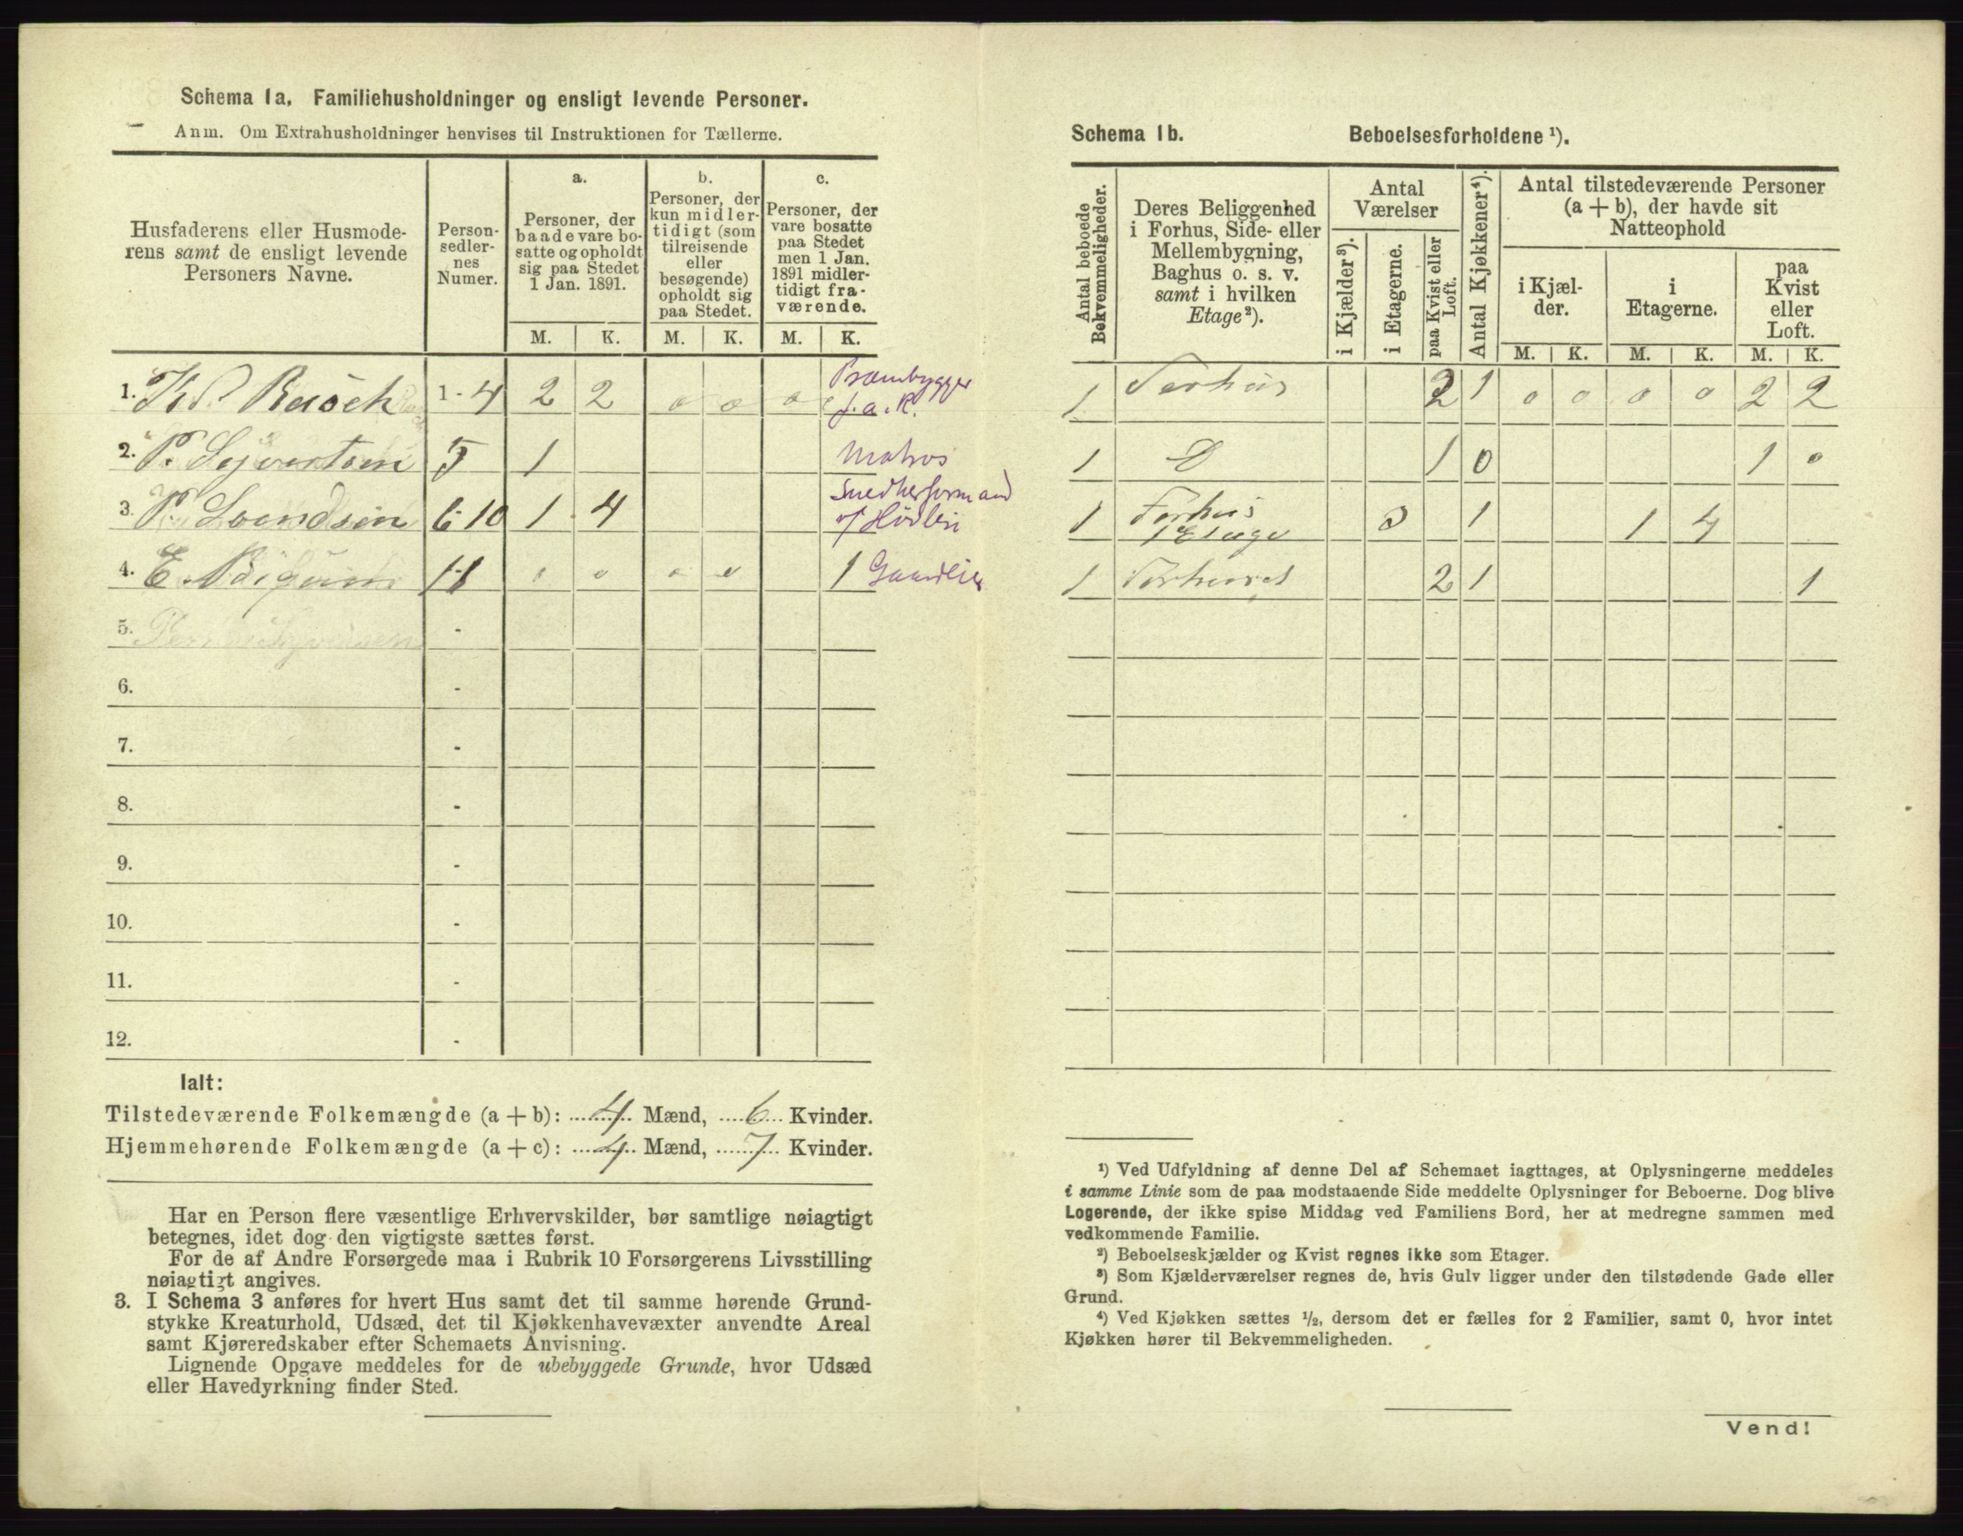 Schema 1a. Familiehusholdninger og ensligt levende Personer.
Anm. Om Extrahusholdninger henvises til Instruktionen for Tællerne.
Husfaderens eller Husmoderens samt de ensligt levende Personers Navne.
Personsedlernes Numer.
a. Personer, der baade vare bosatte og opholdt sig paa Stedet 1 Jan. 1891.
b. Personer, der kun midlertidigt (som tilreisende eller besøgende) opholdt sig paa Stedet.
c. Personer, der vare bosatte paa Stedet men 1 Jan. 1891 midlertidigt fraværende.
M. K. M. K. M. K.
1. Rasch 1-4 2 2 0 0 0 Prambygger f.a.k.
2. P. Syvertsen 5 1 Matros
3. P. 6-10 1 4 Snedkerformand
4. E. 11 0 0 0 0 1
5. -
6. -
7. -
8. -
9. -
10. -
11. -
12. -
Ialt:
Tilstedeværende Folkemængde (a + b): 4 Mænd, 6 Kvinder.
Hjemmehørende Folkemængde (a + c): 4 Mænd, 7 Kvinder.
Har en Person flere væsentlige Erhvervskilder, bør samtlige nøiagtigt
betegnes, idet dog den vigtigste sættes først.
For de af Andre Forsørgede maa i Rubrik 10 Forsørgerens Livsstilling
nøiagtigt angives.
3. I Schema 3 anføres for hvert Hus samt det til samme hørende Grund-
stykke Kreaturhold, Udsæd, det til Kjøkkenhavevæxter anvendte Areal
samt Kjøreredskaber efter Schemaets Anvisning.
Lignende Opgave meddeles for de ubebyggede Grunde, hvor Udsæd
eller Havedyrkning finder Sted.
Schema 1b. Beboelsesforholdene ¹).
Antal beboede Bekvemmeligheder.
Deres Beliggenhed i Forhus, Side- eller Mellembygning, Baghus o. s. v. samt i hvilken Etage²).
Antal Værelser
i Kjælder³).
i Etagerne.
paa Kvist eller Loft.
Antal Kjøkkener⁴).
Antal tilstedeværende Personer (a + b), der havde sit Natteophold
i Kjælder.
i Etagerne.
paa Kvist eller Loft.
M. K. M. K. M. K.
1 Forhus 2 1 0 0 0 0 2 2
1 D 1 0 1 0
1 Forhus 1 Etage 3 1 1 4
1 Forhuset 2 1 1
¹) Ved Udfyldning af denne Del af Schemaet iagttages, at Oplysningerne meddeles
i samme Linie som de paa modstaaende Side meddelte Oplysninger for Beboerne. Dog blive
Logerende, der ikke spise Middag ved Familiens Bord, her at medregne sammen med
vedkommende Familie.
²) Beboelseskjælder og Kvist regnes ikke som Etager.
³) Som Kjælderværelser regnes de, hvis Gulv ligger under den tilstødende Gade eller
Grund.
⁴) Ved Kjøkken sættes ½, dersom det er fælles for 2 Familier, samt 0, hvor intet
Kjøkken hører til Bekvemmeligheden.
Vend!